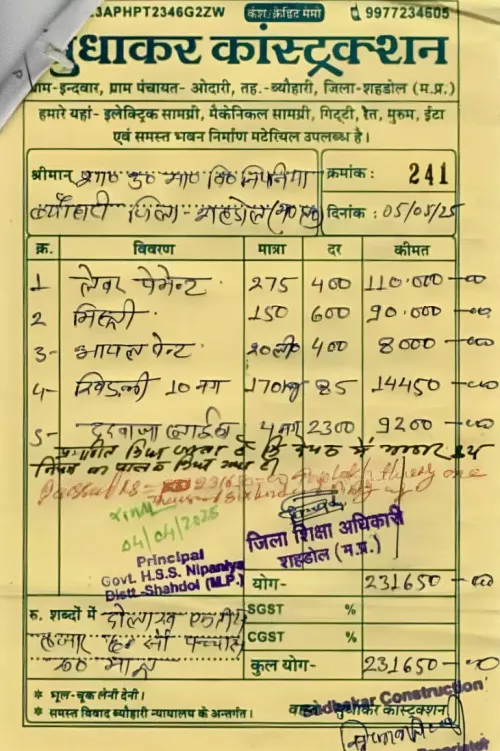 23APHPT2346G2ZW कैश/क्रेडिट मेमो 9977234605
सुधाकर कांस्ट्रक्शन
ग्राम-इन्दवार, ग्राम पंचायत- ओदारी, तह.-ब्यौहारी, जिला-शहडोल (म.प्र.)
हमारे यहां- इलेक्ट्रिक सामग्री, मैकेनिकल सामग्री, गिट्टी, रेत, मुरूम, ईंटा
एवं समस्त भवन निर्माण मटेरियल उपलब्ध है।
श्रीमान् शा० उ० मा० वि० निपनिया क्रमांक : 241
ब्यौहारी जिला-शहडोल (म०प्र०) दिनांक : 05/05/25
क्र. विवरण मात्रा दर कीमत
1 लेबर पेमेन्ट 275 400 110.000-00
2 मिस्त्री 150 600 90.000-00
3- आयल पेन्ट 20ली० 400 8000-00
4- खिड़की 10 नग 170kg 85 14450-00
5- दरवाजा 4 नग 2300 9200-00
प्रमाणित किया जाता है कि
नियम का पालन किया गया है।
231650
04/04/2025
Principal
Govt. H.S.S. Nipaniya
Distt-Shahdol (M.P.)
जिला शिक्षा अधिकारी
शहडोल (म.प्र.)
योग- 231650-00
रु. शब्दों में दो लाख SGST %
हजार छः सौ पचास CGST %
रू० मात्र कुल योग- 231650-00
* भूल-चूक लेनी देनी।
* समस्त विवाद ब्यौहारी न्यायालय के अन्तर्गत। वास्ते सुधाकर कांस्ट्रक्शन
Sudhakar Construction
Proprietor